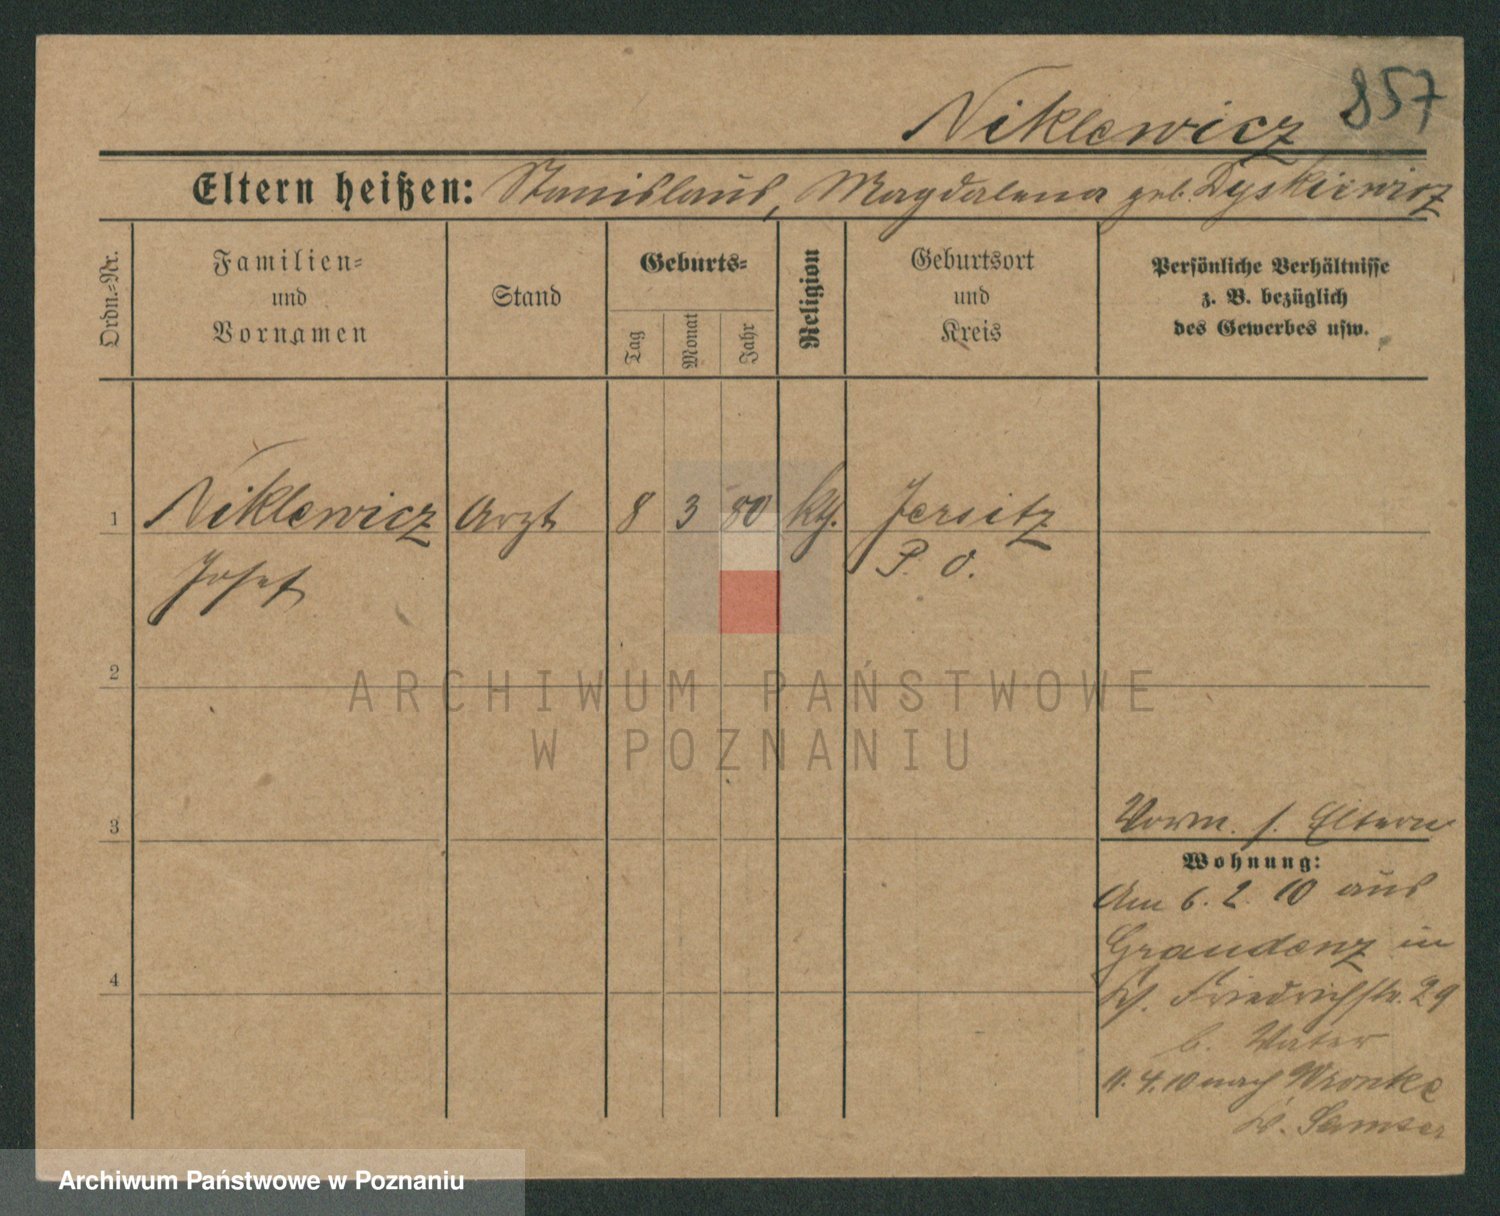 857
Niklewicz
Eltern heißen: Stanislaus, Magdalena geb. Dyskiewicz
Ordn.=Nr.
Familien=
und
Vornamen
Stand
Geburts=
Tag
Monat
Jahr
Religion
Geburtsort
und
Kreis
Persönliche Verhältnisse
z. B. bezüglich
des Gewerbes usw.
1 Niklewicz Arzt 8 3 80 kth. Jersitz
Josef P. O.
2
3
4
Vorm. s. Eltern
Wohnung:
Am 6. 2. 10 aus
Graudenz in
Friedrichstr. 29
b. Vater
4. 10 nach Wronke
Kr. Samter
ARCHIWUM PAŃSTWOWE
W POZNANIU
Archiwum Państwowe w Poznaniu